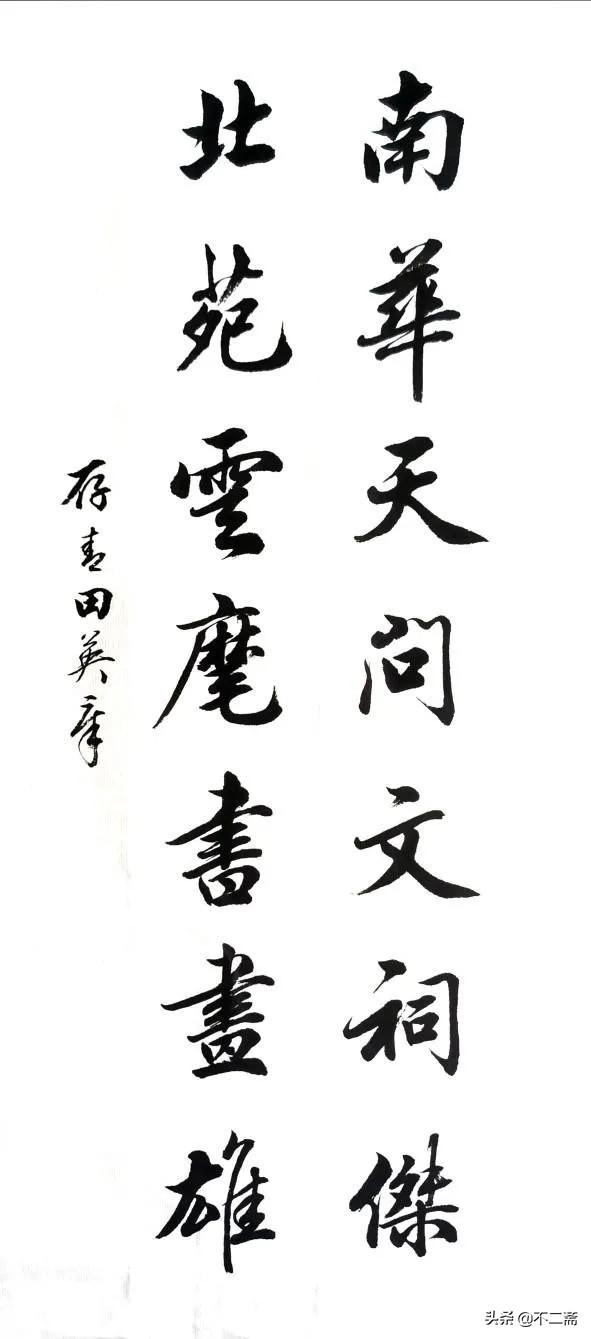 南華天問文祠傑
北苑雲麾書畫雄
存青田英章
头条 @不二斋